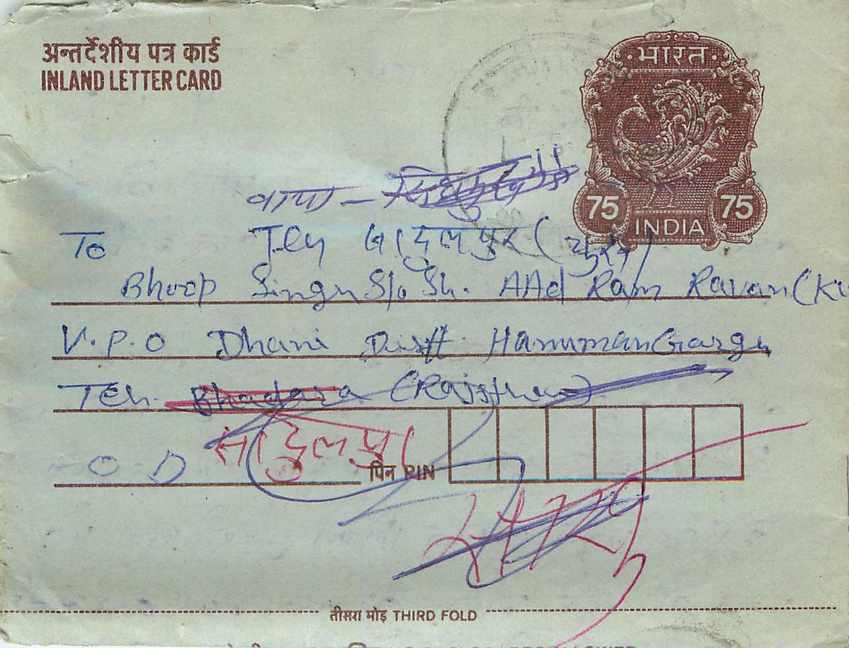 अन्तर्देशीय पत्र कार्ड
INLAND LETTER CARD
भारत
75 75
INDIA
वाया -
To
Teh सादुलपुर (चुरू)
Bhoop Singh S/o Sh. AAd Ram Ravan (Ki
V.P.O Dhani Distt HanumanGargh
Teh. Bhadara (Rajsthan)
सादुलपुर
पिन PIN
तीसरा मोड़ THIRD FOLD